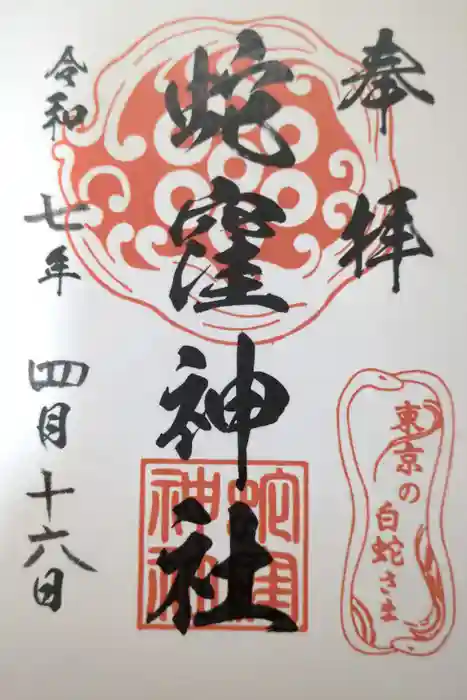 奉拝
蛇窪神社
令和七年四月十六日
東京の
白蛇さま
蛇窪
神社